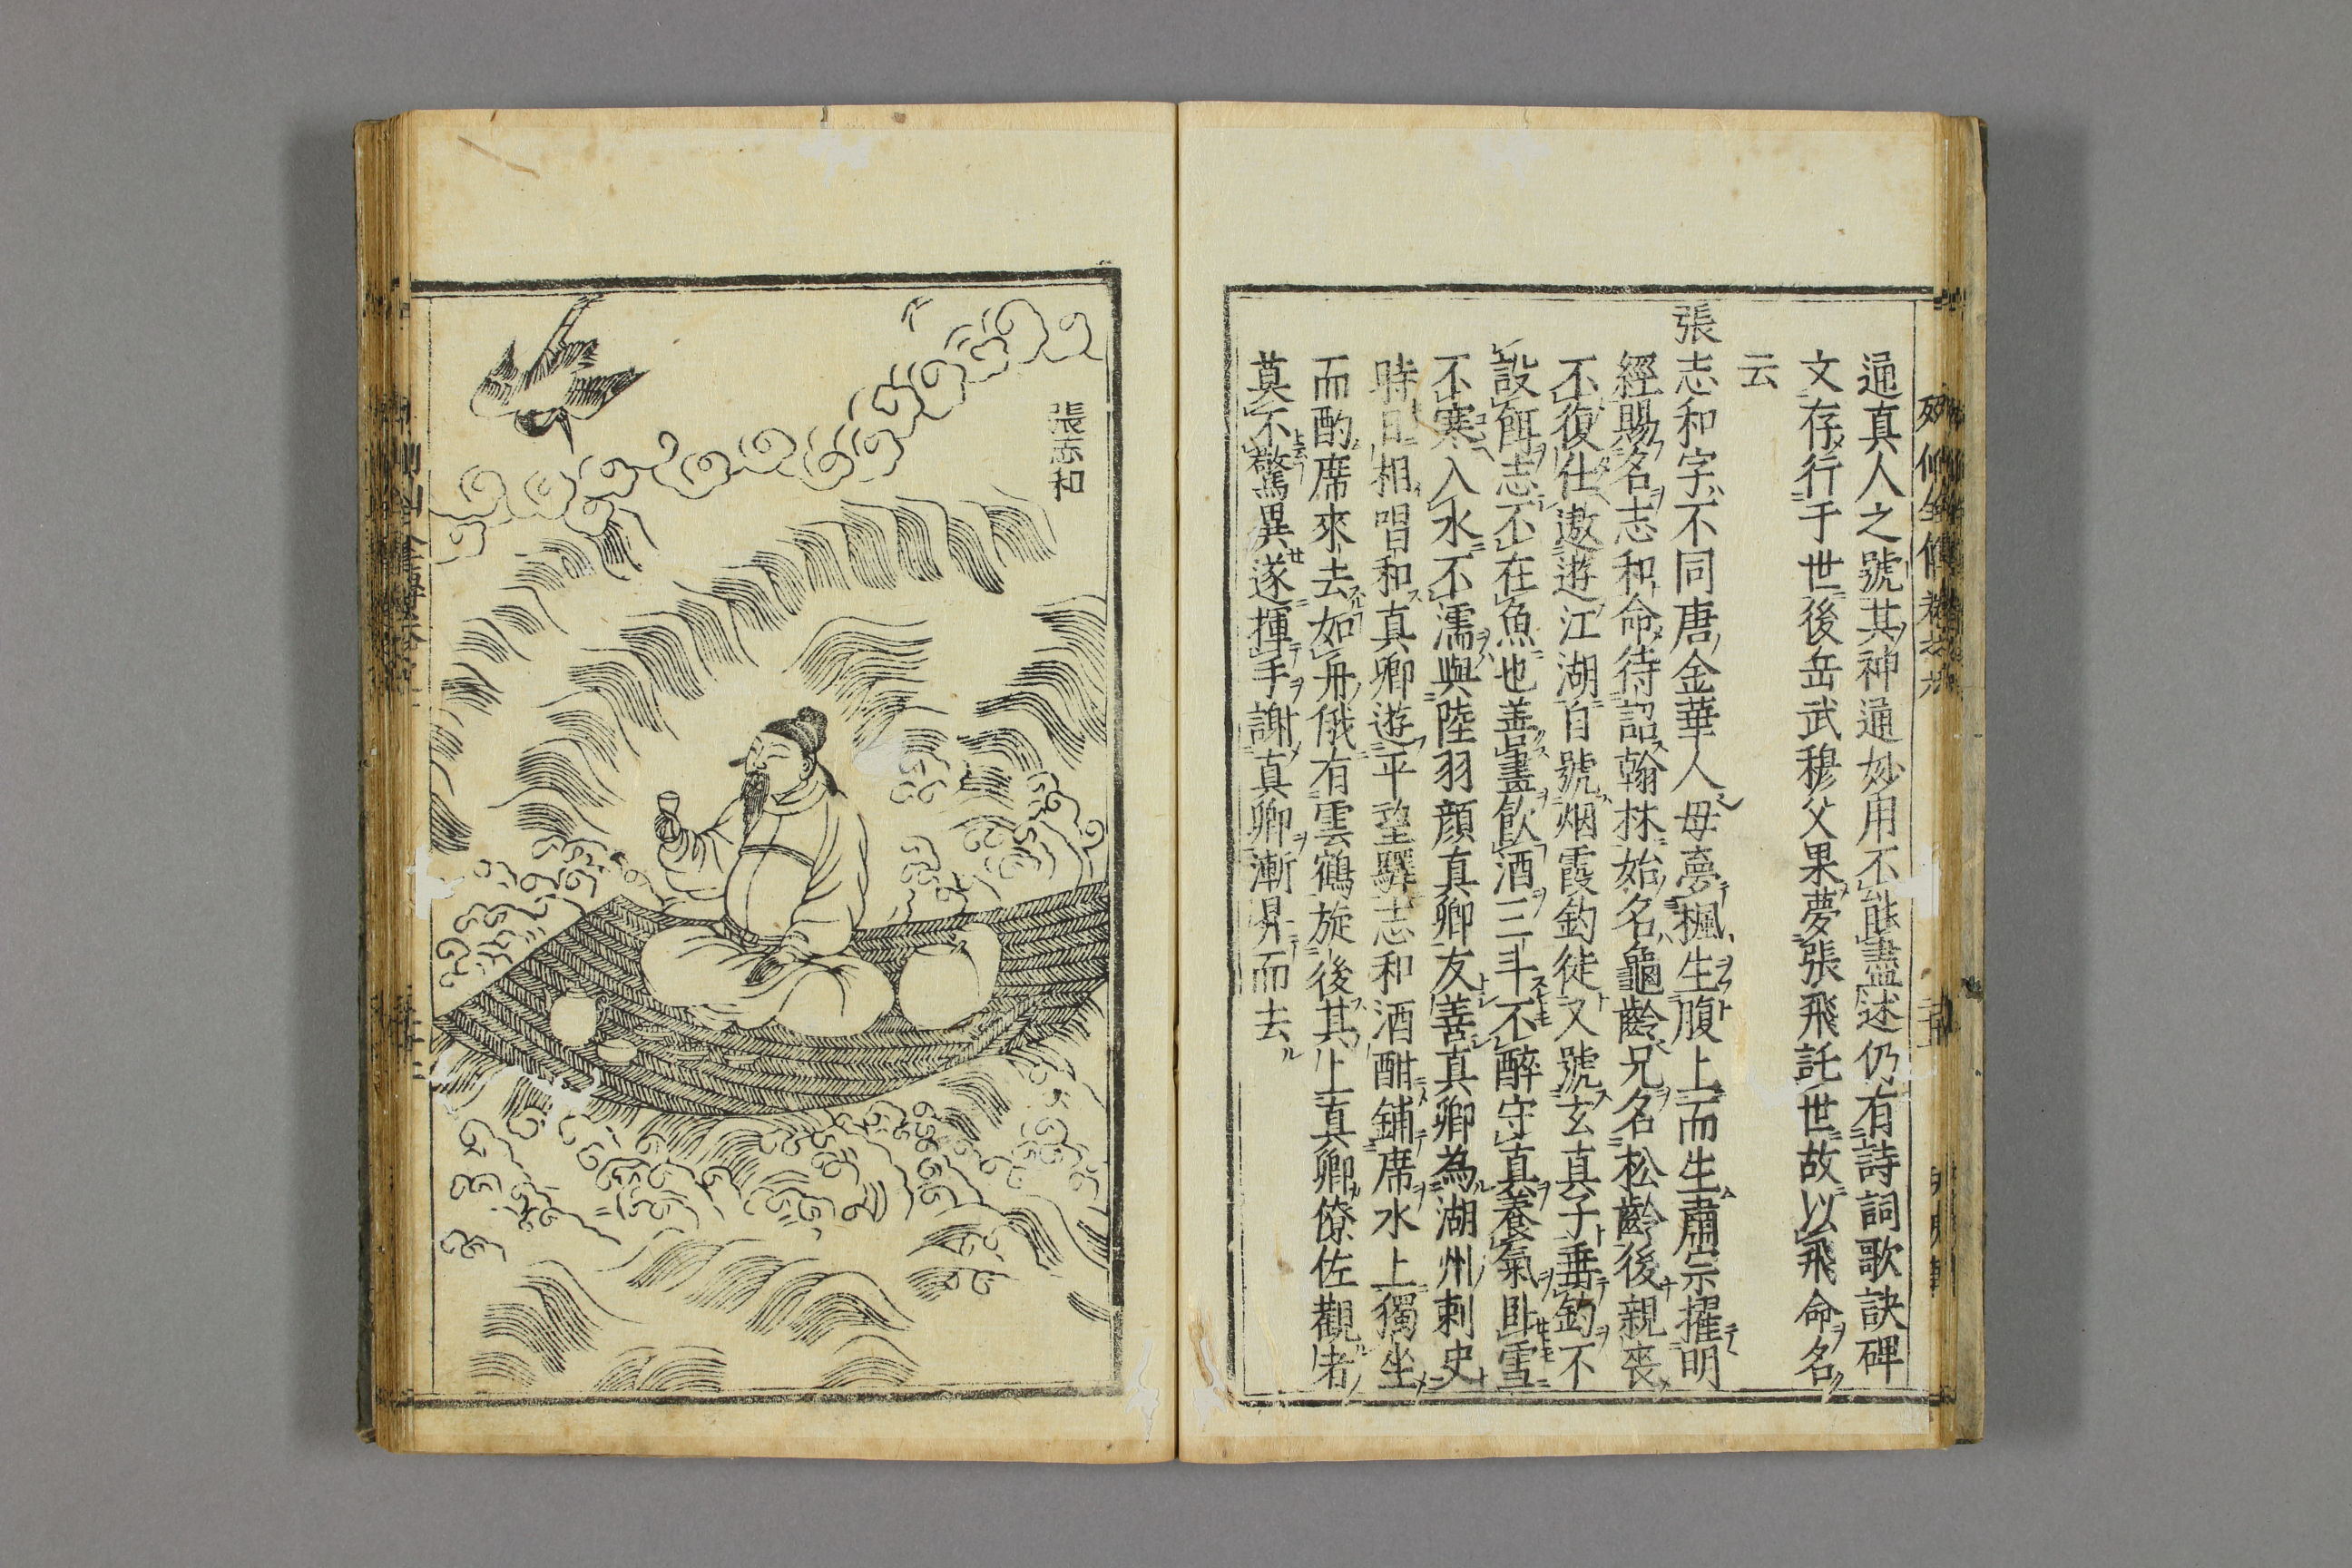 通真人之號其神通妙用不能盡述仍有詩詞歌訣碑
文存行于世後岳武穆父果夢張飛託世故以飛命名
云
張志和字不同唐金華人母夢楓生腹上而生肅宗擢明
經賜名志和命待詔翰林始名龜齡兄名松齡後親喪
不復仕遨遊江湖自號烟霞釣徒又號玄真子垂釣不
設餌志不在魚也善畫飲酒三斗不醉守真養氣臥雪
不寒入水不濡與陸羽顔真卿友善真卿為湖州刺史
時日相唱和真卿遊平望驛志和酒酣鋪席水上獨坐
而酌席來去如舟俄有雲鶴旋後其上真卿僚佐觀者
莫不驚異遂揮手謝真卿漸昇而去
張志和